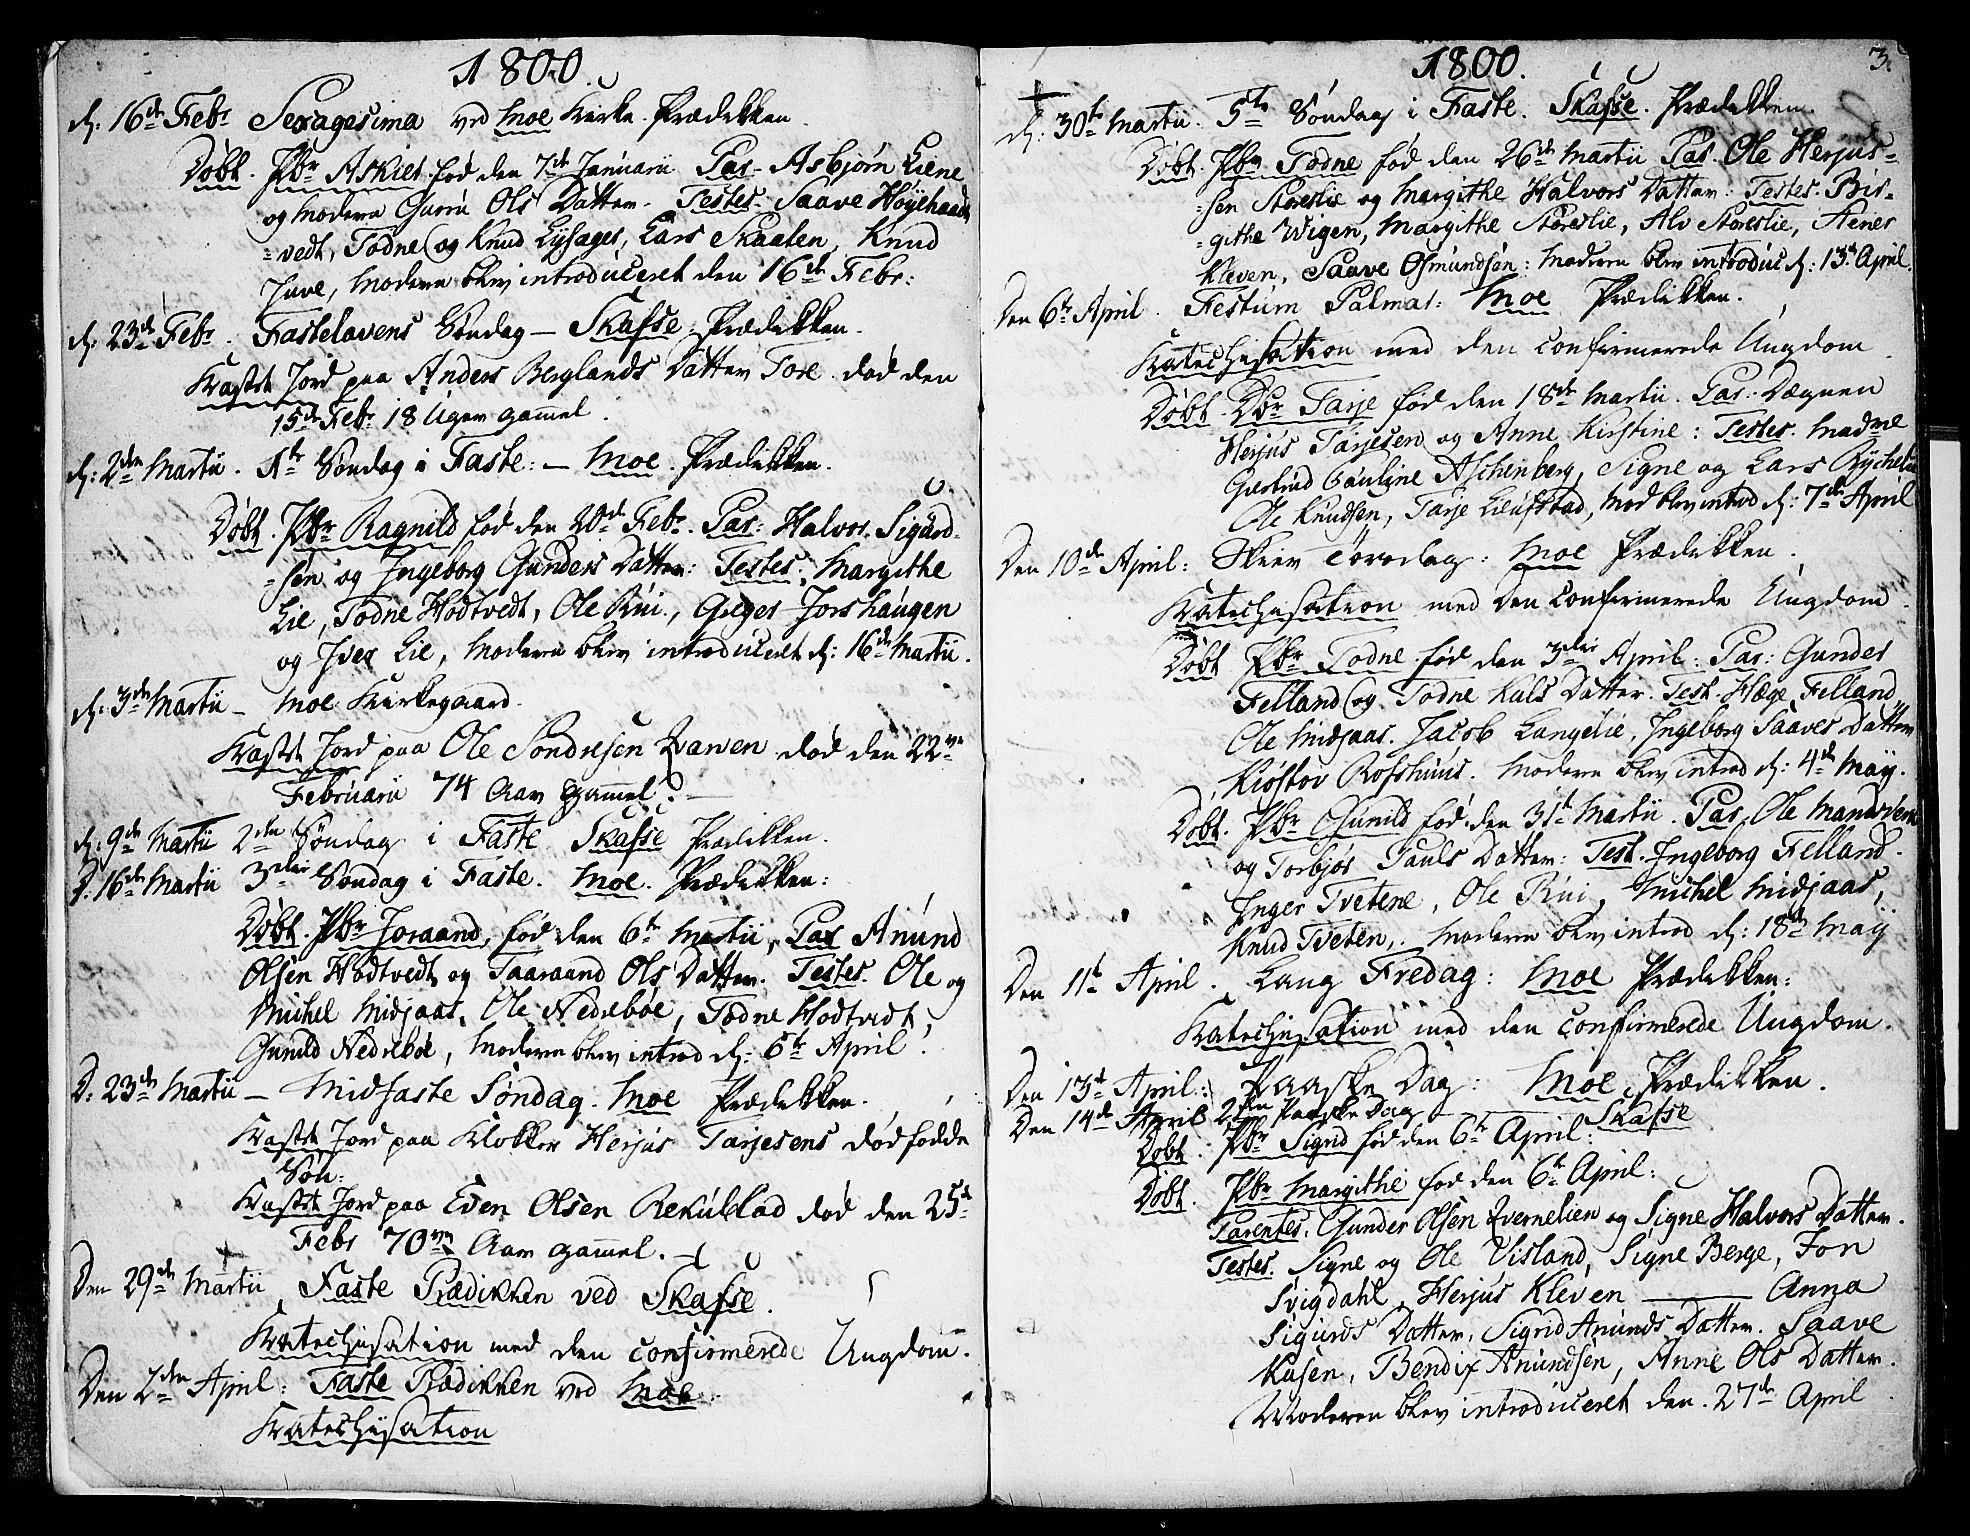 1800.
d: 16de Febr Sexagesima ved Moe Kirke Prædikken.
Døbt. Pbr Askier fød den 7de Januarii Par. Asbjørn Liene
og Modern Guroe Ols Datter. Testes. Saave Høyehaade
=vedt, Todne og Knud Lysager, Lars Skaalen, Knud
Juve, Modern blev introduceret den 16de Febr:
d: 23de Febr. Fastelavens Søndag — Skafse Prædikken.
Kastet Jord paa Anders Berglands Datter Tore død den
15de Febr 18 Uger gamel.
d: 2den Martii. 1te Søndag i Faste: — Moe. Prædikken.
Døbt. Pbr Ragnild fød den 20de Febr. Par: Halvor Sigurd-
=sen og Ingeborg Gunders Datter: Testes: Margithe
Lie, Todne Hodtvedt, Ole Rui, Gieger Jorshaugen
og Iver Lie, Modern blev introduceret d: 16de Martii.
d: 3de Martii — Moe Kirkegaard.
Kastet Jord paa Ole Sondresen Qvanen død den 22de
Februarii 74 Aar gamel. —
d: 9de Martii 2den Søndag i Faste Skafse Prædikken.
D. 16de Martii 3die Søndag i Faste. Moe. Prædikken:
Døbt. Pbr Joraand, fød den 6te Martii, Par Anund
Olsen Hodtvedt og Taaraand Ols Datter. Testes. Ole og
Michel Midjaas, Ole Nedrebøe, Todne Hodtvedt,
Gunild Nedrebøe, Modern blev introd d: 6te April.
D: 23de Martii — Midfaste Søndag. Moe Prædikken.
Kastet Jord paa Klokker Herjus Tarjesens dødfødde
Søn:
Kastet Jord paa Even Olsen Rekublad død den 25de
Febr 70 Aar gamel. —
Den 29de Martii Faste Prædikken ved Skafse.
Katechisation med den confirmerede Ungdom.
Den 2den April: Faste Prædikken ved Moe.
Katechisation
1800. 3.
d: 30te Martii. 5te Søndag i Faste. Skafse. Prædikken.
Døbt. Pbr Todne fød den 26de Martii Par. Ole Herjus=
=sen Storeslie og Margithe Halvors Datter: Testes. Bir=
=githe Wigen, Margithe Storeslie, Alv Storeslie, Aener
Kleven, Saave Osmundsen: Modern blev introduc d: 13de April.
Den 6te April. Festum Palmar: Moe Prædikken.
Katechisation med den confirmerede Ungdom
Døbt. Dbr Tarje fød den 18de Martii. Par. Dægnen
Herjus Tarjesen og Anne Kirstine: Testes. Madme
Giertrud Pauline Aschenberg, Signe og Lars Rychelie
Ole Knudsen, Tarje Leufstad, Mod blev introd d: 7de April
Den 10de April: Skier Torsdag: Moe Prædikken.
Katechisation med den confirmerede Ungdom.
Døbt Pbr Todne fød den 3die April: Par: Gunder
Felland og Todne Kals Datter. Test. Hæge Felland,
Ole Midjaas. Jacob Langelie, Ingeborg Saaves Datter
Kiøstov Rofshuus. Modern blev introd d: 4de May.
Døbt. Pbr Gunild fød den 31te Martii. Par. Ole Mandsverk
og Torbjør Pauls Datter: Test. Ingeborg Felland.
Inger Tvetene, Ole Rui, Michel Midjaas,
Knud Tveten,. Modern blev introd d: 18de May
Den 11te April. Lang Fredag: Moe Prædikken:
Katechisation med den confirmerede Ungdom.
Den 13de April: Paaske Dag: Moe Prædikken.
Den 14de April 2den Paaske Dag — Skafse
Døbt. Pbr Sigrid fød den 6te April:
Døbt. Pbr Margithe fød den 6te April:
Parentes. Gunder Olsen Qvernelien og Signe Halvors Datter.
Testes. Signe og Ole Visland, Signe Berge, Jon
Svigdahl, Herjus Kleven — Anna
Sigurds Datter, Sigrid Anunds Datter. Saave
Kasen, Bendix Anundsen, Anne Ols Datter.
Moderen blev introduceret den 27de April